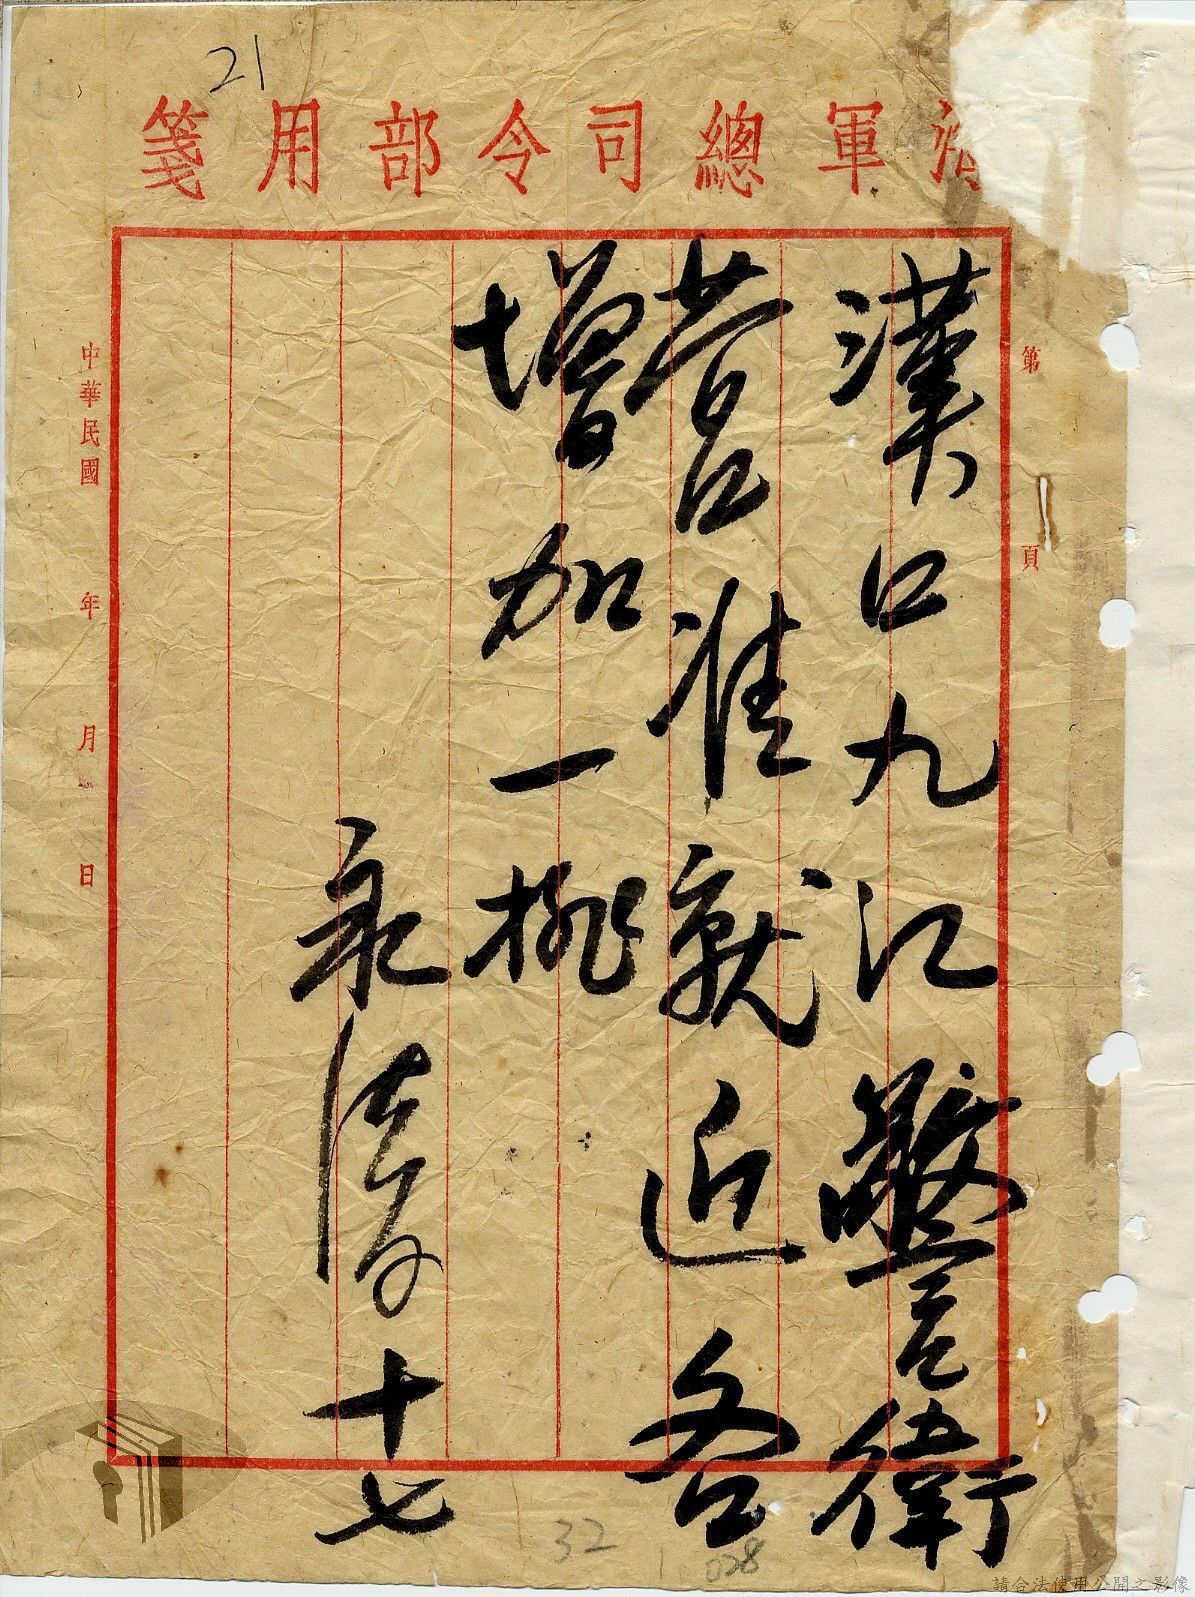 21
海軍總司令部用箋
第 頁
漢口九江警衛
營准就近各
增加一排
永清 十七
中華民國 年 月 日
32
028
請合法使用公開之影像